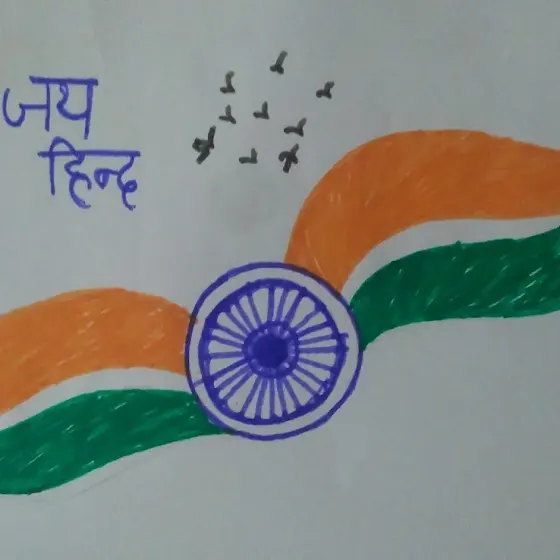 जय
हिन्द